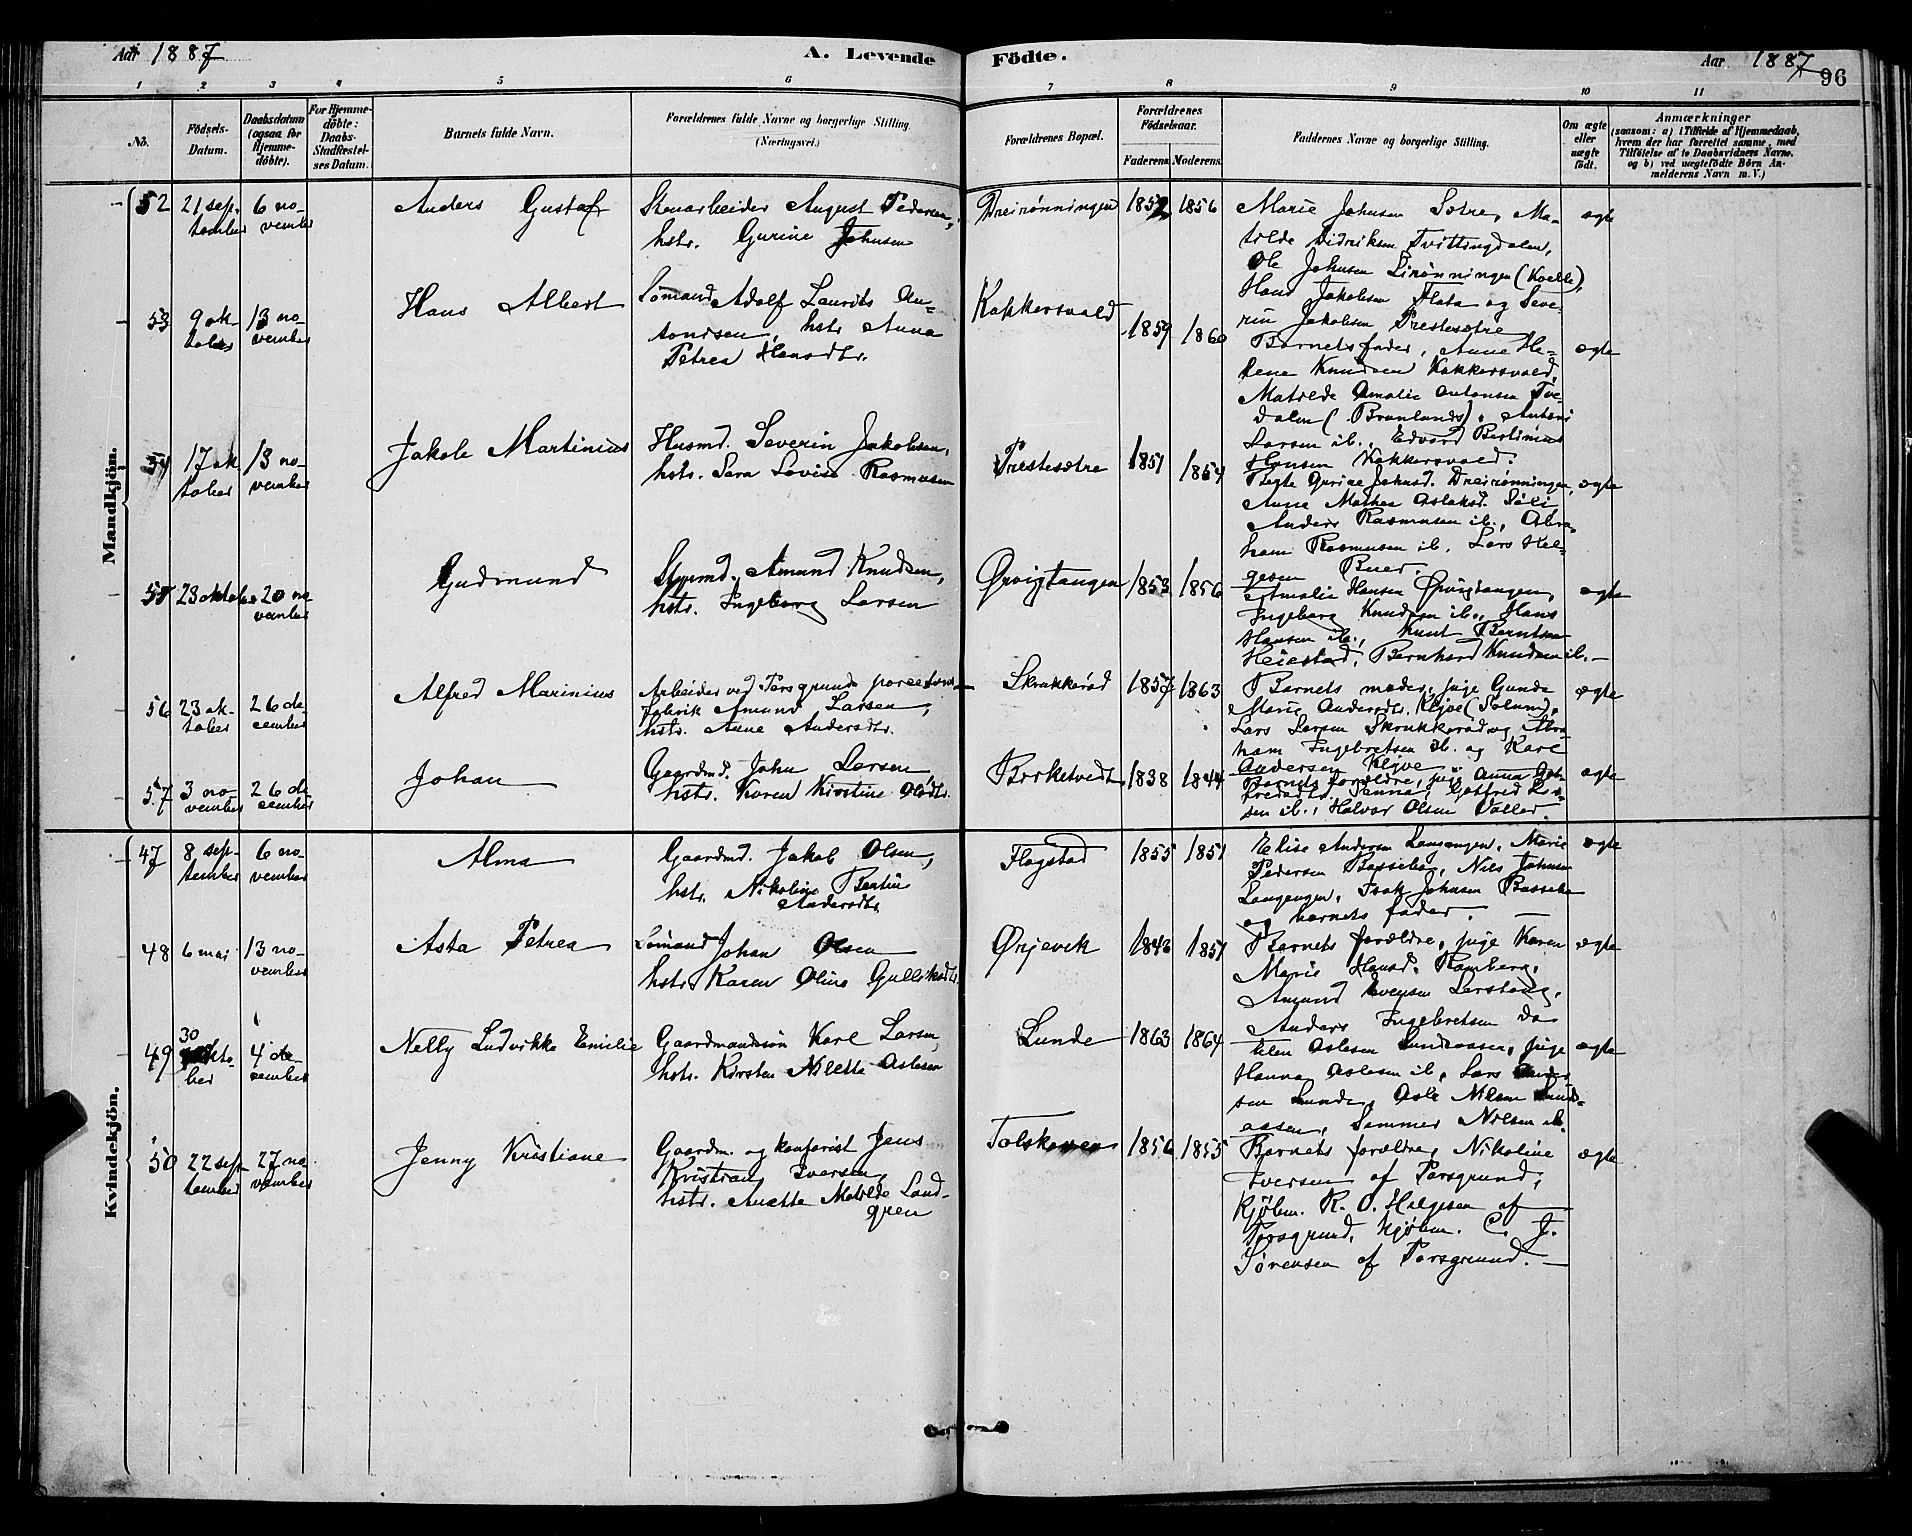 Aar 1887
A. Levende
Födte.
Aar 1887
96
1 2 3 4 5 6 7 8 9 10 11
No.
Födsels-
Datum.
Daabsdatum
(ogsaa for
Hjemme-
döbte).
For Hjemme-
döbte:
Daabs-
Stadfæstel-
ses Datum.
Barnets fulde Navn.
Forældrenes fulde Navne og borgerlige Stilling.
(Næringsvei.)
Forældrenes Bopæl.
Forældrenes
Födselsaar.
Faderens. Moderens.
Faddernes Navne og borgerlige Stilling.
Om ægte
eller
uægte
födt.
Anmærkninger
(saasom: a) i Tilfælde af Hjemmedaab,
hvem der har forrettet samme, med
Tilföielse af to Daabsvidners Navne,
og b) ved uægtefödte Börn An-
melderens Navn m. V.)
Mandkjön.
52
21 sep-
tember
6 no-
vember
Anders Gustaf
Stenarbeider August Pedersen,
hstr. Gurine Johnsen
Dreirønningen
1852 1856
Marie Johnsen Sotre, Ma-
tilde Didriksen Tvittingdalen,
Ole Johnsen Lirønningen
Hans Jakobsen Flata og Seve-
rin Jakobsen Prestesætre
ægte
53
9 ok-
tober
13 no-
vember
Hans Albert
Sømand Adolf Laurits An-
tonsen, hstr. Anna
Petrea Hansdtr.
Kokkersvold
1859 1860
Barnets fader, Anne He-
lene Knudsen Kokkersvold,
Matilde Amalie Antonsen Tve-
dalen (Brunlands), Antoni
Larsen ib., Edvard Bertinius
Hansen Kokkersvold.
ægte
54
17 ok
tober
13 no-
vember
Jakob Martinius
Husmd. Severin Jakobsen,
hstr. Sara Lovise Rasmusen
Prestesætre
1851 1854
Pigte Gurine Johnsd. Dreirønningen,
Anne Mathea Aslaksd. Søli
Anders Rasmusen ib., Abra-
ham Rasmusen ib. Lars Hel-
gesen Buer.
ægte
55
23 oktober
20 no
vember
Gudmund
Styrmd. Amund Knudsen,
hstr. Ingeborg Larsen
Ørvigtangen
1853 1856
Amalie Hansen Ørvigtangen,
Ingeborg Knudsen ib., Hans
Hansen ib., Knut Berntsen
Heiestad, Bernhard Knudsen ib.
ægte
56
23 ok-
tober
26 de-
cember
Alfred Marinius
Arbeider ved Porsgrunds porcelæns
fabrik Amund Larsen,
hstr. Anne Andersdtr.
Skrukkerød
1857 1863
Barnets moder, pige Gunda
Marie Andersdtr. Klyve (Solum),
Lars Larsen Skrukkerød og Abra-
ham Ingebretsen ib. og Karl
Andersen Klyve
ægte
57
3 no-
vember
26 de-
cember
Johan
Gaardmd. John Larsen
hstr. Karen Kirstine Olsdtr.
Birketvedt
1838 1844
Barnets forældre, pige Anna
Gotfred Lar-
sen ib., Halvor Olsen Valler.
ægte
Kvindekjön.
47
8 sep-
tember
6 no-
vember
Alma
Gaardmd. Jakob Olsen,
hstr. Nikoline Bentine
Andersdtr.
Flogstad
1855 1851
Elise Andersen Langangen, Marie
Pedersen Bassebo, Nils Johnsen
Langangen, Isak Johnsen Bassebo
og barnets fader.
ægte
48
6 mai
13 no-
vember
Asta Petrea
Sømand Johan Olsen
hstr. Karen Oline Gulliksdtr.
Ønjevik
1843 1851
Barnets forældre, pige Karen
Marie Hansd. Ramberg,
Amund Evensen Lerstang,
Anders Ingebretsen do
ægte
49
30
okto-
ber
4 de-
cember
Nelly Ludvikka Emilie
Gaardmandssøn Karl Larsen,
hstr. Kirsten Nilette Aslesen
Lunde
1863 1864
Elen Aslesen Lundeaasen, pige
Hanna Aslesen ib, Lars
sen Lunde, Asle Nilsen Lund-
aasen, Sommer Nilsen ib.
ægte
50
22 sep-
tember
27 no-
vember
Jenny Kristiane
Gaardm. og kontorist Jens
Kristian Iversen,
hstr. Anette Matilde Land-
gren
Tolskoven
1856 1855
Barnets forældre, Nikoline
Iversen af Porsgrund,
Kjøbm. R. O. Helgesen af
Porsgrund, Kjøbm. C. J.
Sørensen af Porsgrund.
ægte